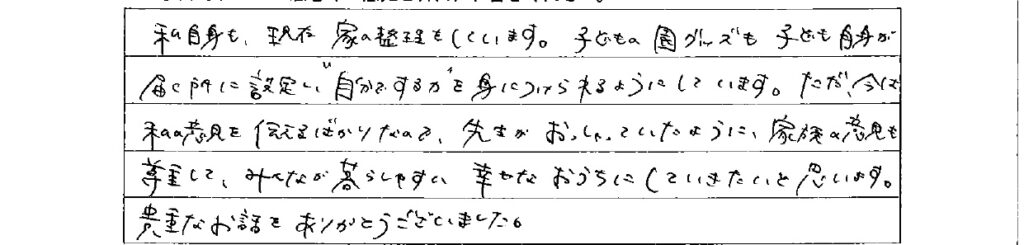 私自身も、現在 家の整理をしています。子どもの園グッズも子ども自身が
届く所に設定し、"自分でする力"を身につけられるようにしています。ただ、今は
私の意見を伝えるばかりなので、先生がおっしゃっていたように、家族の意見も
尊重して、みんなが暮らしやすい 幸せなおうちにしていきたいと思います。
貴重なお話をありがとうございました。